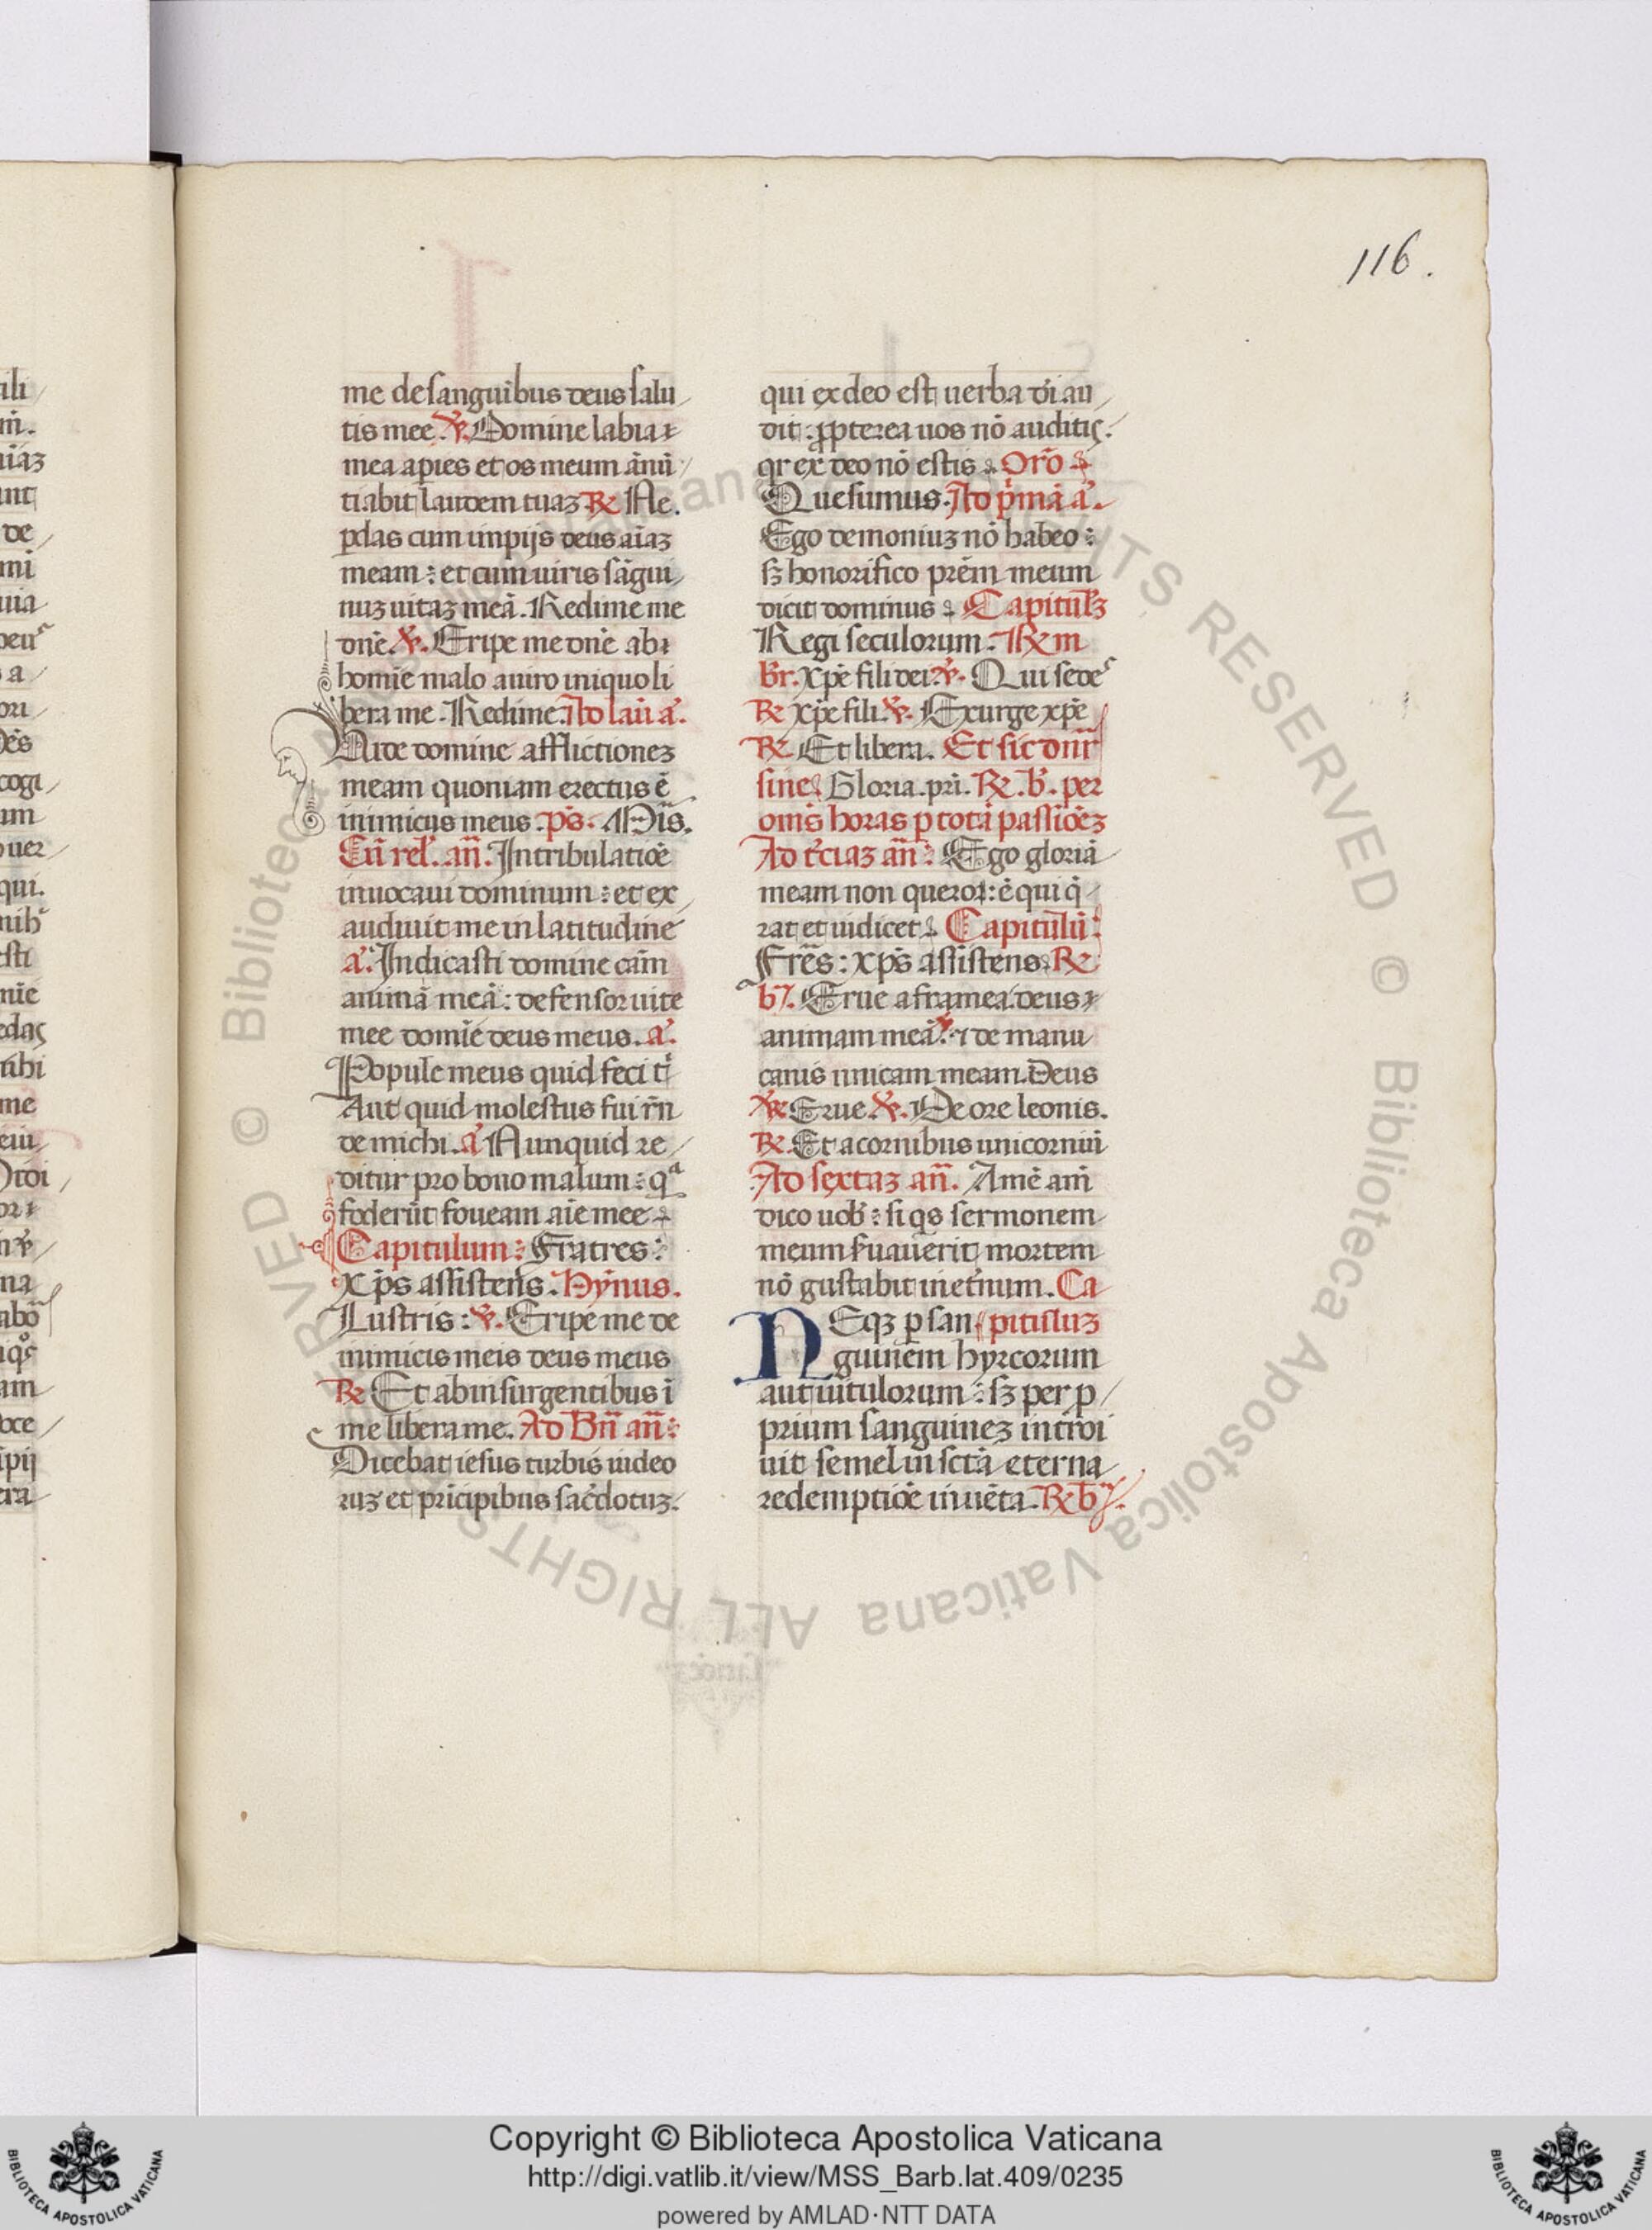 116.
me de sanguibus deus salu
tis mee. ℣. Domine labia
mea apies et os meum ānū
tiabit laudem tuaz ℞ Ne.
pdas cum impijs deus aīaz
meam : et cum uiris sāgui
nuz uitaz meā. Redime me
dn̄e. ℣. Eripe me dn̄e ab
homīe malo a uiro iniquo li
bera me. Redime. Ad lau a.
Uide domine afflictionez
meam quoniam erectus ē
inimicus meus. ps. Mis.
Cū rel. an̄. In tribulatiōe
inuocaui dominum : et ex
audiuit me in latitudine
a. Iudicasti domine cām
animā meā : defensor uite
mee domīe deus meus. a.
Popule meus quid feci ti
Aut quid molestus fui rn̄
de michi. a. Nunquid re
ditur pro bono malum : qa
foderūt foueam aīe mee
Capitulum : Fratres :
Xp̄s assistens. Hȳnus.
Lustris : ℣. Eripe me de
inimicis meis deus meus
℞ Et ab insurgentibus ī
me libera me. Ad Bn̄ an̄ :
Dicebat iesus turbis iudeo
ruz et prīcipibus sac̄dotuz.
qui ex deo est uerba dī au
dit : ꝓpterea uos nō auditis.
qr ex deo nō estis. Orō
Quesumus. Ad p̄mā a.
Ego demoniuz nō habeo :
sz honorifico pr̄em meum
dicit dominus. Capitulz
Regi seculorum. ℞m
br. Xpe fili dei. ℣. Qui sedes
℞ xpe fili. ℣. Exurge xpe
℞ Et libera. Et sic dnr
sine Gloria. pri. ℞. b. per
om̄s horas p totā passiōez
Ad t̄ciaz an̄ : Ego gloriā
meam non quero : ē qui q
rat et iudicet. Capitulū :
Fr̄es : xp̄s assistens. ℞
b. Erue a framea deus
animam meā. ℣ et de manu
canis unicam meam. Deus
℣ Erue ℣. De ore leonis.
℞. Et a cornibus unicorniū
Ad sextaz an̄. Amē am̄
dico uob : si qs sermonem
meum suauerit mortem
nō gustabit in et̄num. Ca
Neqz p san pituluz
guinem hyrcorum
aut uitulorum : sz per p
prium sanguinez introi
uit semel in sctā eterna
redemptiōe inuēta. ℞ b.
© Biblioteca Apostolica Vaticana ALL RIGHTS RESERVED
Copyright © Biblioteca Apostolica Vaticana
http://digi.vatlib.it/view/MSS_Barb.lat.409/0235
powered by AMLAD·NTT DATA
BIBLIOTECA APOSTOLICA VATICANA
BIBLIOTECA APOSTOLICA VATICANA